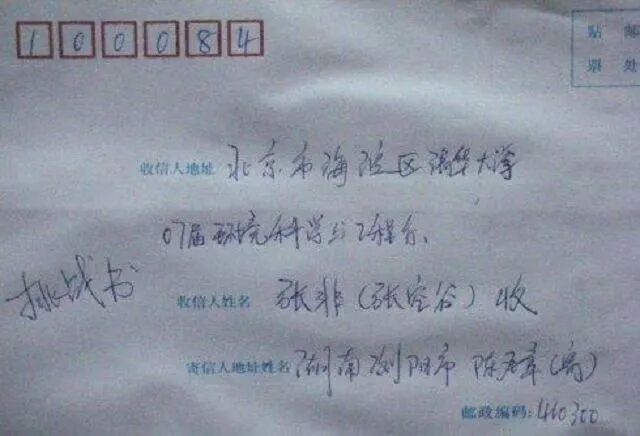 100084
贴 邮
票 处
收信人地址 北京市海淀区清华大学
07届环境科学与工程系.
挑战书
收信人姓名 张非(张空谷)收
寄信人地址姓名 湖南浏阳市 陈君章(寄)
邮政编码: 410300